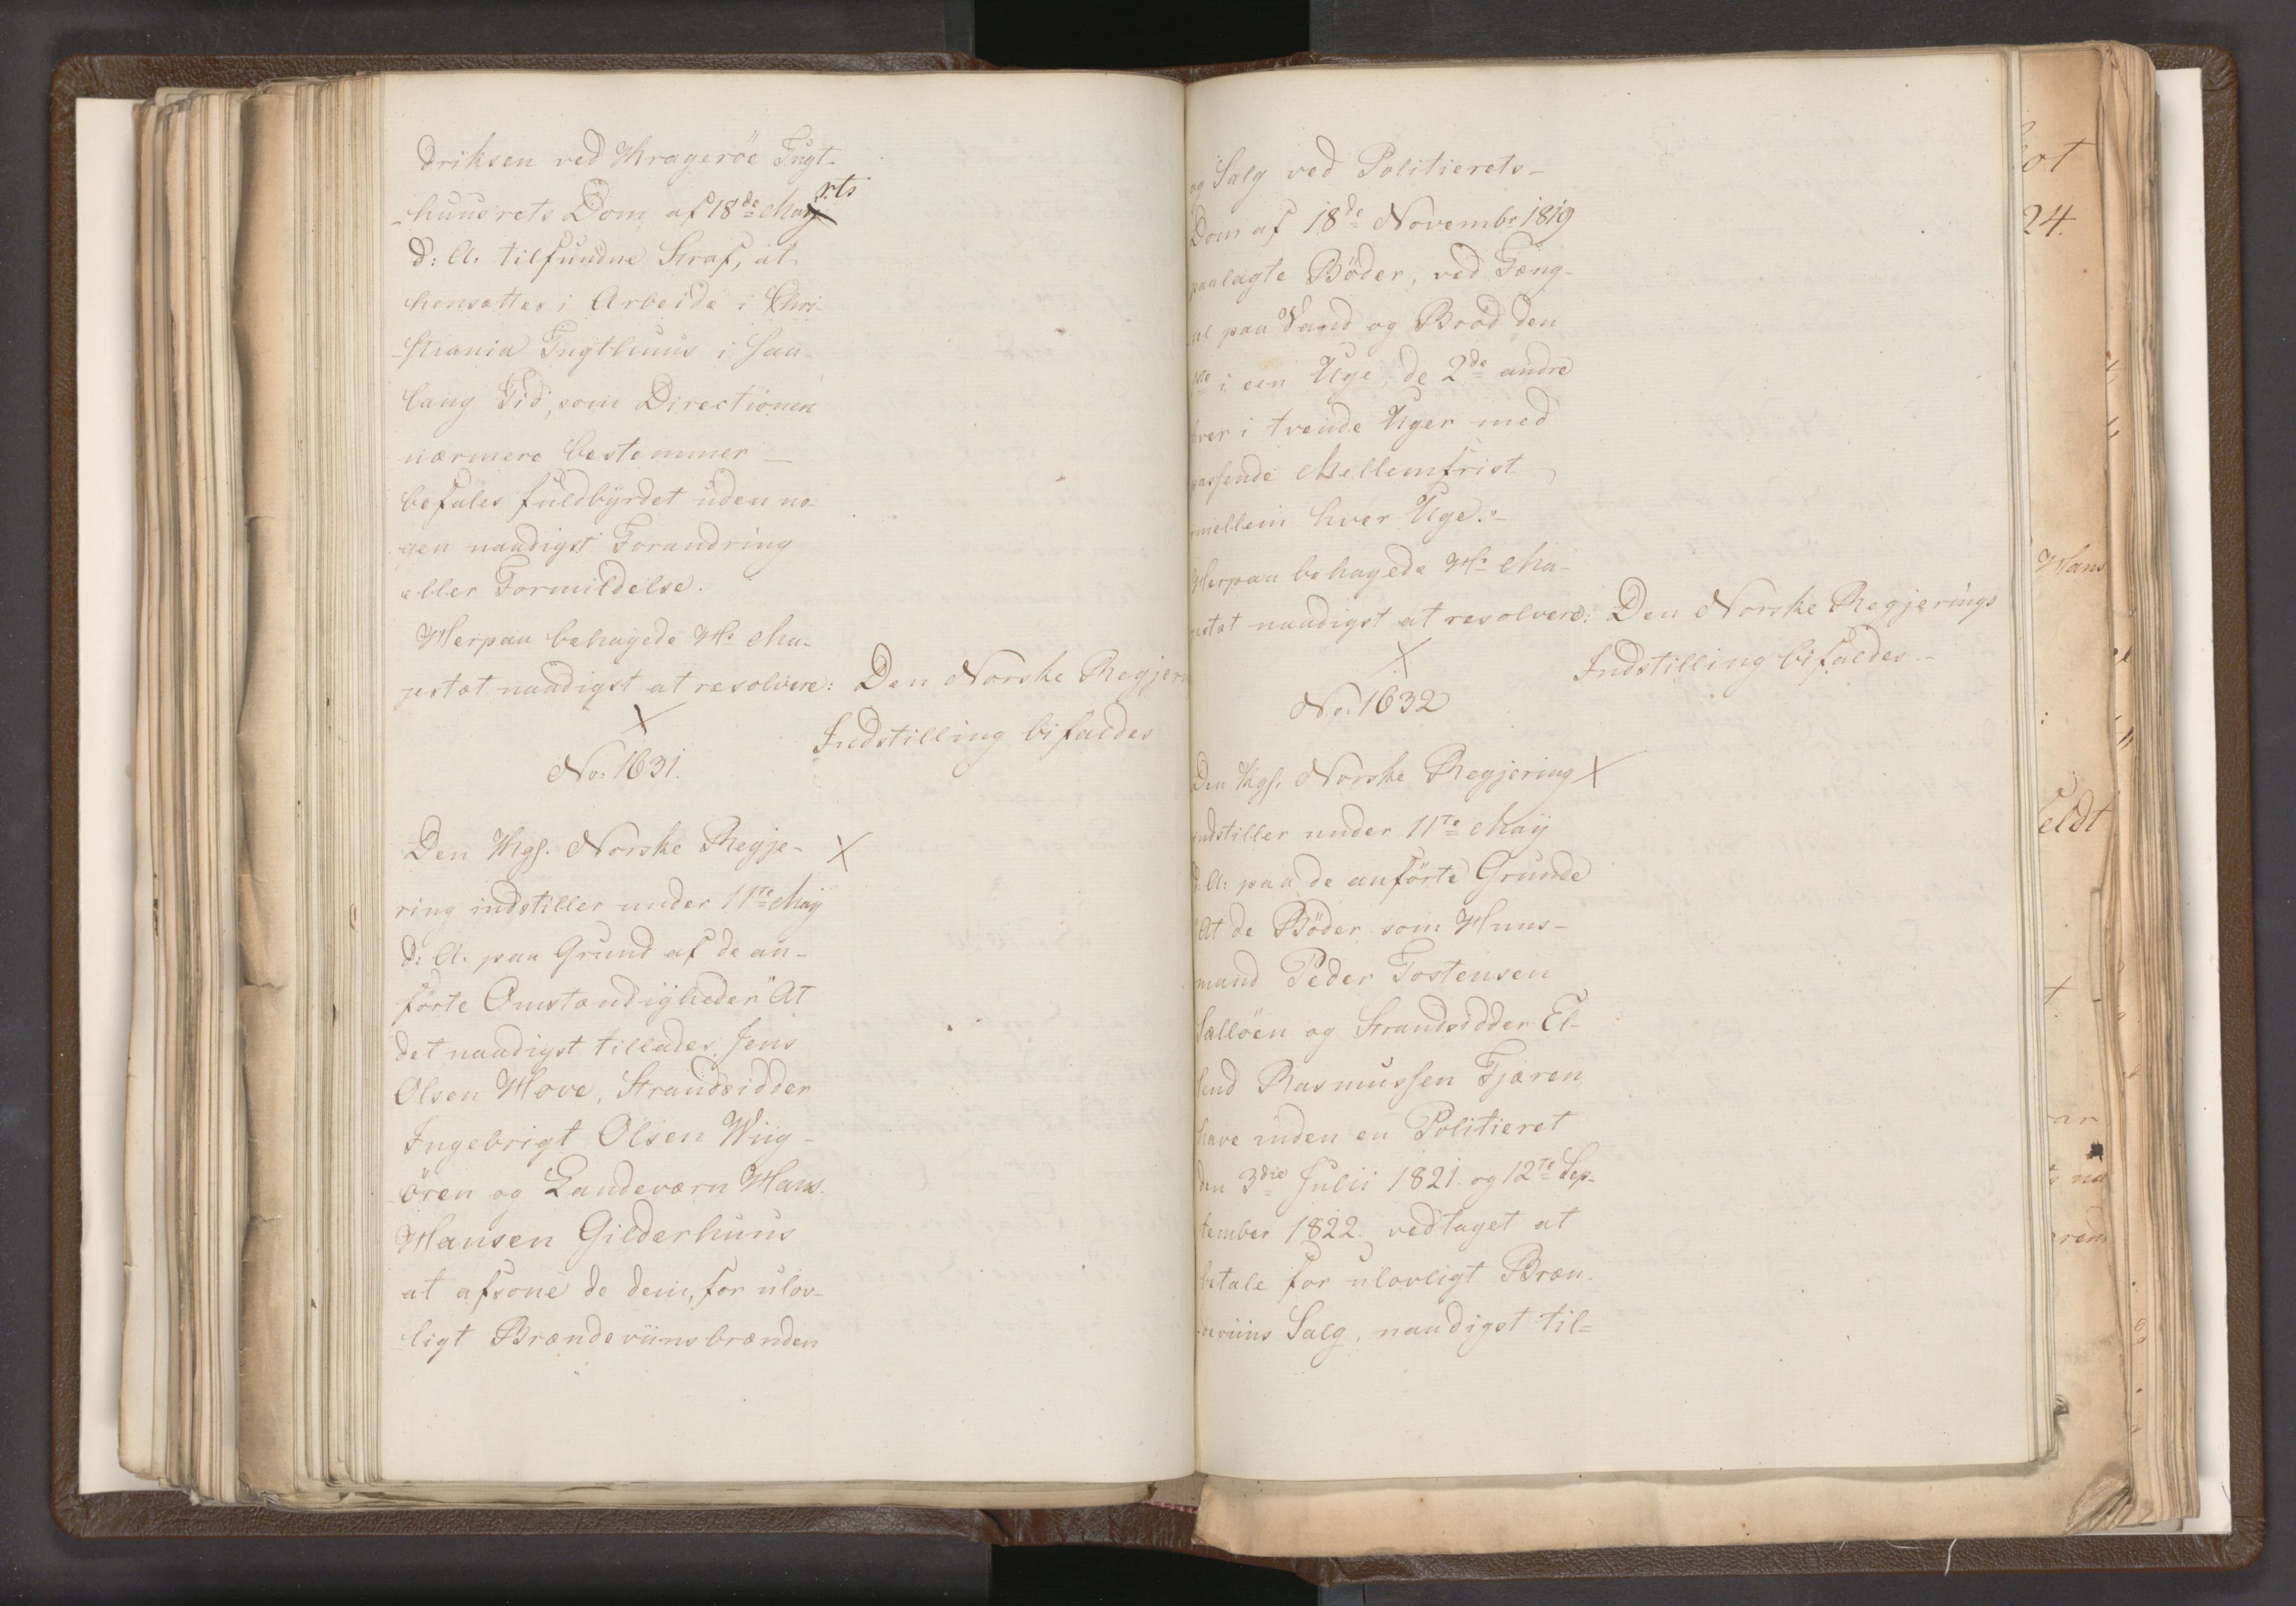 driksen ved Kragerøe Tugt-
-huusrets Dom af 18de Marts
d: A. tilfundne Straf, at
hensættes i Arbeide i Chri-
-stiania Tugthuus i saa
lang Tid, som Directionen
nærmere bestemmer —
befales fuldbyrdet uden no-
gen naadigst Forandring
eller Formildelse.
Herpaa behagede Hs Ma-
jestæt naadigst at resolvere: Den Norske Regjer
Indstilling bifaldes
No: 1631.
Den Kgs. Norske Regje-
ring indstiller under 11te May
d: A. paa Grund af de an-
førte Omstændigheder "At
det naadigst tillades Jens
Olsen Hove, Strandsidder
Ingebrigt Olsen Wiig-
-ören og Landeværn Hans
Hansen Gilderhuus
at afsone de dem, for ulov-
ligt Brændeviinsbrænden
og Salg ved Politierets-
Dom af 18de Novembr 1819
paalagte Böder, ved Fæng-
sel paa Vand og Bröd den
1ste i een Uge, de 2de andre
hver i tvende Uger med
passende Mellemfrist
imellem hver Uge."-
Herpaa behagede Hs Ma-
jestæt naadigst at resolvere: Den Norske Regjerings
Indstilling bifaldes-
No: 1632
Den Kgs. Norske Regjering
indstiller under 11te May
d. A: paa de anförte Grunde
"At de Böder som Huus-
mand Peder Tostensen
Sællöen og Strandsidder El-
lend Rasmussen Tjæren
have inden en Politieret
den 3die Julii 1821. og 12te Sep-
tember 1822. vedtaget at
betale for ulovligt Bræn-
deviins Salg, naadigst til=
ot
24.
Hans
eldt
ar
na